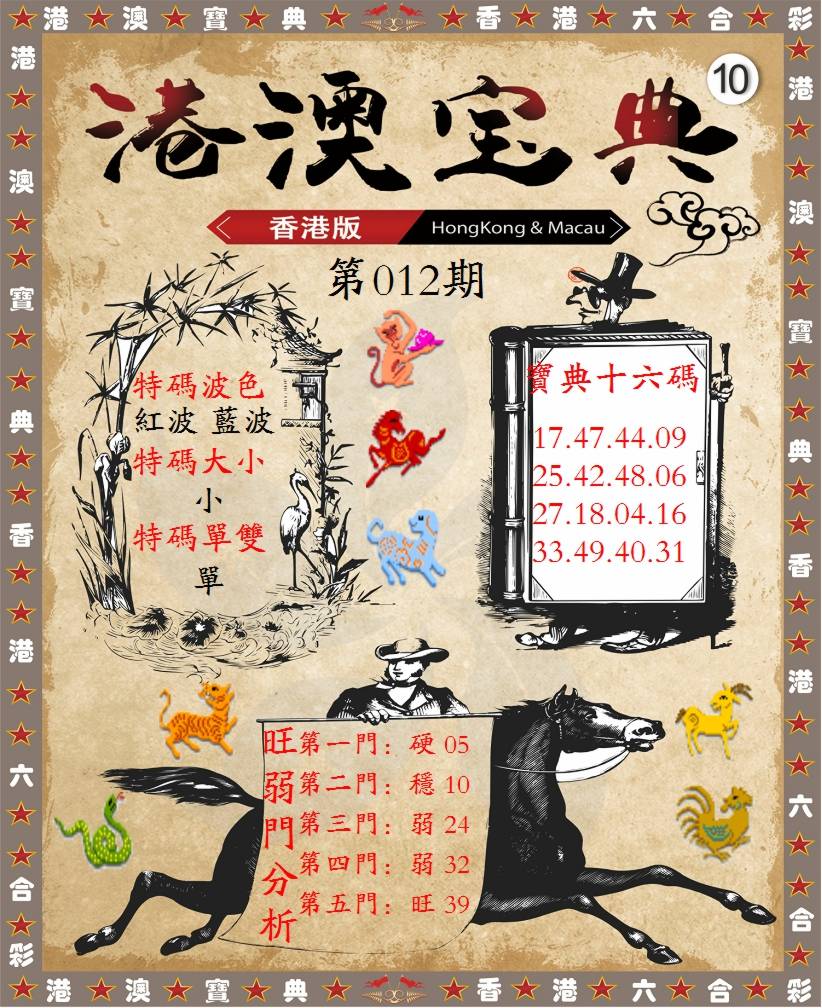 港★澳★寶★典★香★港★六★合★彩
10
港澳宝典
香港版 HongKong & Macau
第012期
特碼波色
紅波 藍波
特碼大小
小
特碼單雙
單
寶典十六碼
17.47.44.09
25.42.48.06
27.18.04.16
33.49.40.31
旺弱門分析
第一門：硬 05
第二門：穩 10
第三門：弱 24
第四門：弱 32
第五門：旺 39
港★★澳★★寶★★典★★香★★港★★六★★合★彩
港★★澳★★寶★★典★★香★★港★★六★★合★彩
港★澳★寶★典★香★港★六★合★彩